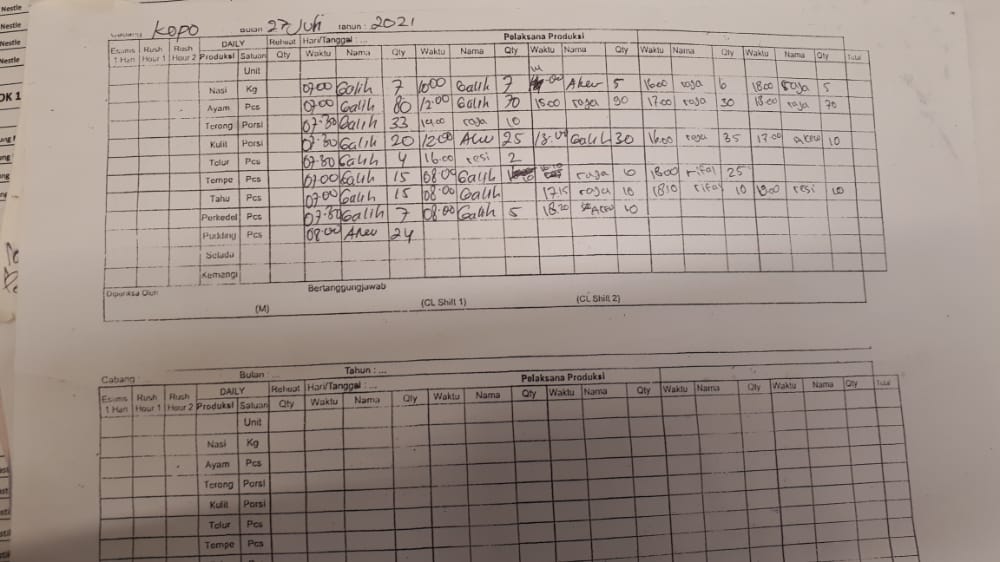 Nestle
Nestle
Nestle
Nestle
OK 1
Kopo Bulan 27 Juli Tahun : 2021
Esimis 1 Hari Rush Hour 1 Rush Hour 2 DAILY Rehuat Hari/Tanggal : ... Pelaksana Produksi
Produksi Satuan Qty Waktu Nama Qty Waktu Nama Qty Waktu Nama Qty Waktu Nama Qty Waktu Nama Qty Total
Unit
Nasi Kg 07.00 Galih 7 10.00 Galih 7 Akew 5 16.00 raja 6 18.00 raja 5
Ayam Pcs 07.00 Galih 80 12.00 Galih 70 15.00 raja 90 17.00 raja 30 18.00 raja 70
Terong Porsi 07.30 Galih 33 14.00 raja 10
Kulit Porsi 07.30 Galih 20 12.00 25 13.00 Galih 30 16.00 raja 35 17.00 akew 10
Telur Pcs 07.30 Galih 4 16.00 resi 2
Tempe Pcs 07.00 Galih 15 08.00 Galih raja 10 18.00 rifal 25
Tahu Pcs 07.00 Galih 15 08.00 Galih 17.15 raja 10 18.10 rifal 10 19.00 resi 10
Perkedel Pcs 07.30 Galih 7 08.00 Galih 5 18.20 Akew 10
Pudding Pcs 08.00 Akew 24
Selada
Kemangi
Diperiksa Oleh Bertanggungjawab
(M) (CL Shift 1) (CL Shift 2)
Cabang : ... Bulan : ... Tahun : ...
Esimis 1 Hari Rush Hour 1 Rush Hour 2 DAILY Rehuat Hari/Tanggal : ... Pelaksana Produksi
Produksi Satuan Qty Waktu Nama Qty Waktu Nama Qty Waktu Nama Qty Waktu Nama Qty Waktu Nama Qty Total
Unit
Nasi Kg
Ayam Pcs
Terong Porsi
Kulit Porsi
Telur Pcs
Tempe Pcs